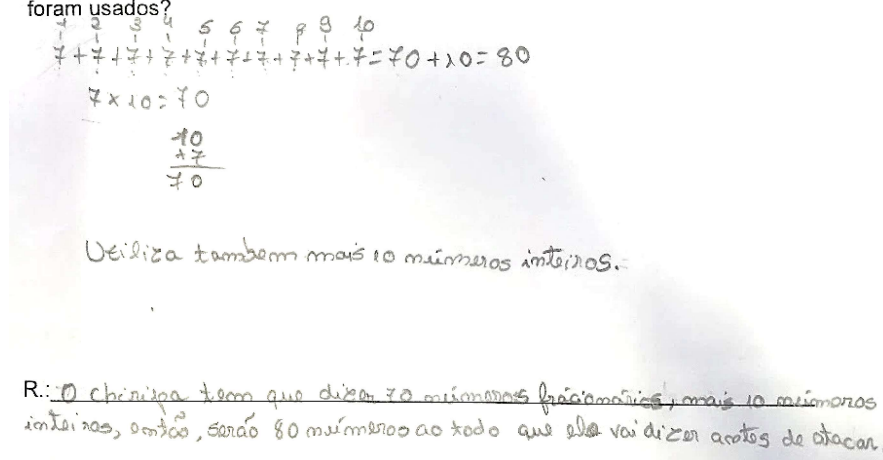 foram usados?
1 2 3 4 5 6 7 8 9 10
7+7+7+7+7+7+7+7+7+7=70+10=80
7×10=70
10
×7
70
Utiliza tambem mais 10 números inteiros.
R.: O chirippa tem que dizer 70 números fracionários, mais 10 números
inteiros, então, serão 80 números ao todo que ele vai dizer antes de atacar